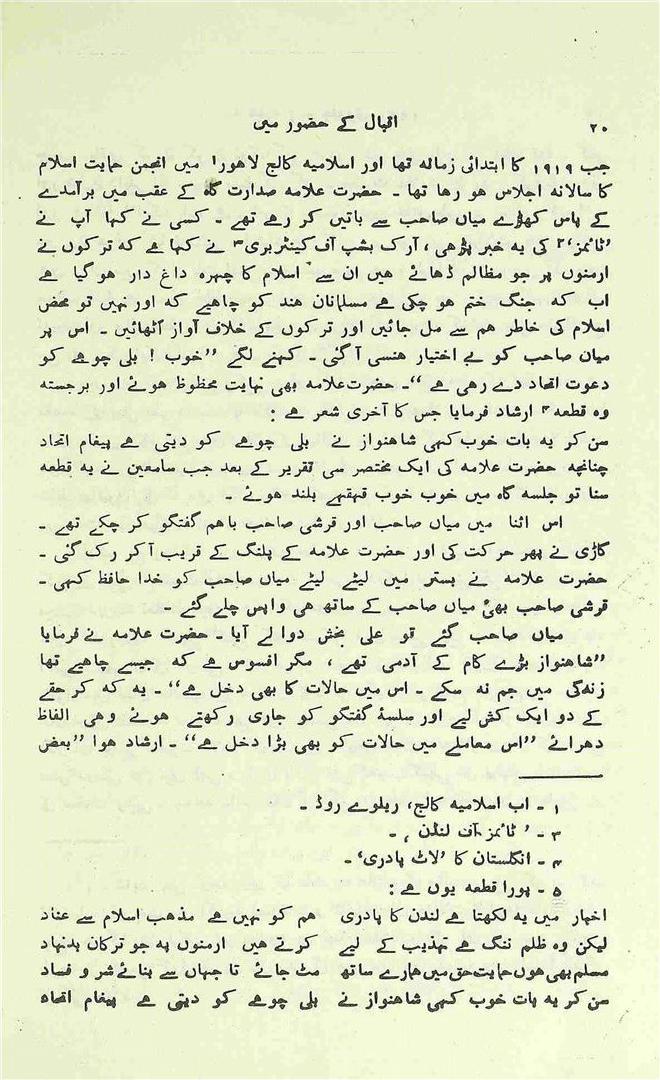 ۲۰ اقبال کے حضور میں
جب ۱۹۱۹ کا ابتدائی زمالہ تھا اور اسلامیہ کالج لاهور۱ میں انجمن حمایت اسلام
کا سالانہ اجلاس هو رها تھا ۔ حضرت علامہ صدارت گاہ کے عقب میں برآمدے
کے پاس کھڑے میاں صاحب سے باتیں کر رہے تھے ۔ کسی نے کہا آپ نے
’ٹائمز‘۲ کی یہ خبر پڑھی ، آرک بشپ آف کینٹربری۳ نے کہا ہے کہ ترکوں نے
ارمنوں پر جو مظالم ڈھائے هیں ان سے اسلام کا چہرہ داغ دار هو گیا ہے
اب کہ جنگ ختم هو چکی ہے مسلمانان هند کو چاهیے کہ اور نہیں تو محض
اسلام کی خاطر هم سے مل جائیں اور ترکوں کے خلاف آواز آٹھائیں ۔ اس پر
میاں صاحب کو بے اختیار هنسی آ گئی ۔ کہنے لگے ”خوب ! بلی چوہے کو
دعوت اتحاد دے رهی ہے“۔ حضرت علامہ بھی نہایت محظوظ هوئے اور برجستہ
وہ قطعہ۴ ارشاد فرمایا جس کا آخری شعر ہے :
سن کر یہ بات خوب کہی شاهنواز نے بلی چوہے کو دیتی ہے پیغام اتحاد
چنانچہ حضرت علامہ کی ایک مختصر سی تقریر کے بعد جب سامعین نے یہ قطعہ
سنا تو جلسہ گاہ میں خوب خوب قہقہے بلند هوئے ۔
اس اثنا میں میاں صاحب اور قرشی صاحب باهم گفتگو کر چکے تھے ۔
گاڑی نے پھر حرکت کی اور حضرت علامہ کے پلنگ کے قریب آ کر رک گئی ۔
حضرت علامہ نے بستر میں لیٹے لیٹے میاں صاحب کو خدا حافظ کہی ۔
قرشی صاحب بھی میاں صاحب کے ساتھ هی واپس چلے گئے ۔
میاں صاحب گئے تو علی بخش دوا لے آیا ۔ حضرت علامہ نے فرمایا
”شاهنواز بڑے کام کے آدمی تھے ، مگر افسوس ہے کہ جیسے چاهیے تھا
زندگی میں جم نہ سکے ۔ اس میں حالات کا بھی دخل ہے“۔ یہ کہ کر حقے
کے دو ایک کش لیے اور سلسۂ گفتگو کو جاری رکھتے هوئے وهی الفاظ
دهرائے ”اس معاملے میں حالات کو بھی بڑا دخل ہے“ ۔ ارشاد هوا ”بعض
۱ ۔ اب اسلامیہ کالج، ریلوے روڈ ۔
۳ ۔ ’ ٹائمز آف لنڈن ‘ ۔
۴ ۔ انگلستان کا ’لاٹ پادری‘ ۔
۵ ۔ پورا قطعہ یوں ہے :
اخبار میں یہ لکھتا ہے لندن کا پادری هم کو نہیں ہے مذهب اسلام سے عناد
لیکن وہ ظلم ننگ ہے تہذیب کے لیے کرتے هیں ارمنوں پہ جو ترکان بدنہاد
مسلم بھی هوں حمایت حق میں همارے ساتھ مٹ جائے تا جہاں سے بنائے شر و فساد
سن کر یہ بات خوب کہی شاهنواز نے بلی چوہے کو دیتی ہے پیغام اتحاد